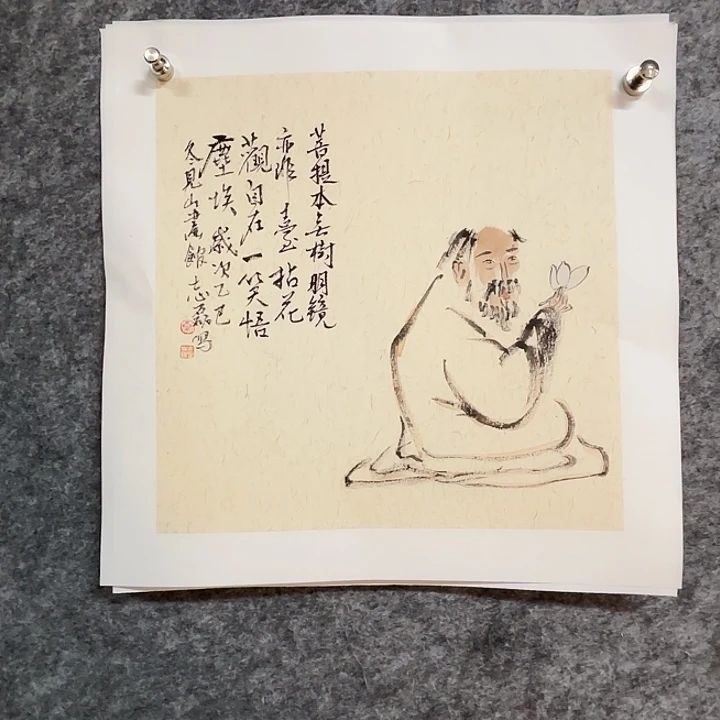 菩提本无樹明镜
亦非臺拈花
觀自在一笑悟
塵埃歲次乙巳
冬見山畫館志磊寫